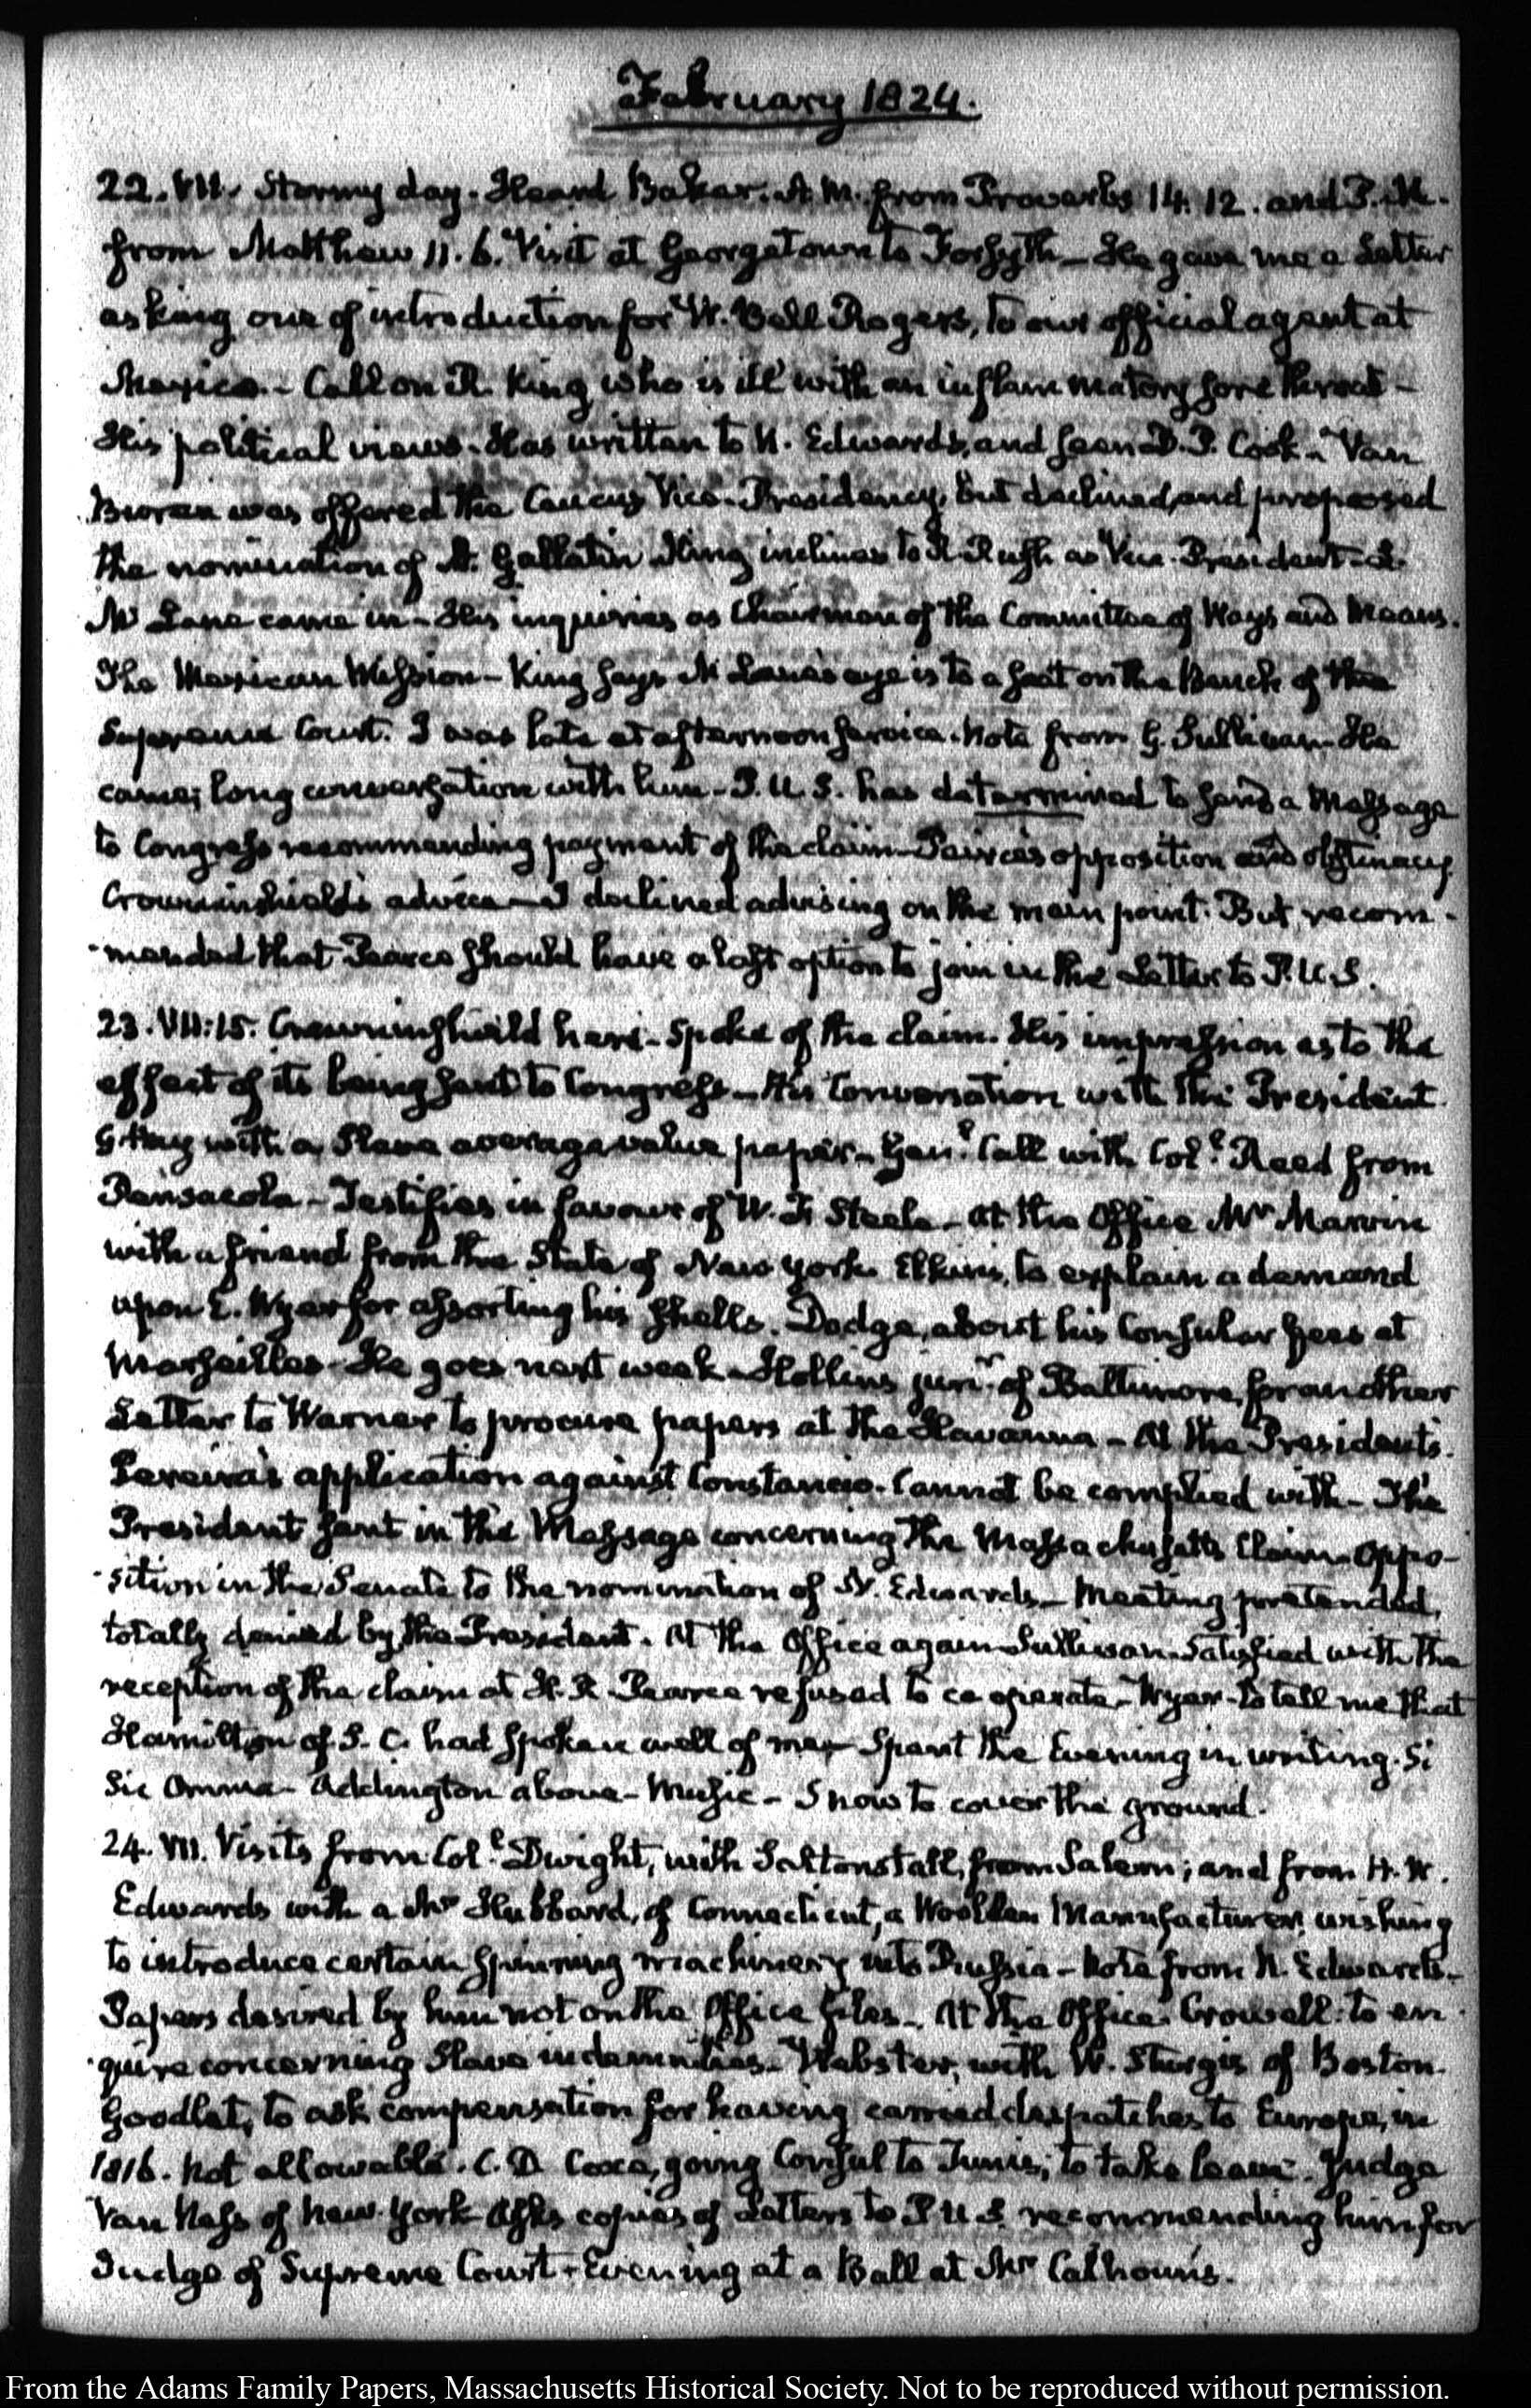 February 1824.
22. VII. Stormy day. Heard Baker. A.M. from Proverbs 14. 12. and P.M.
from Matthew 11. 6. Visit at Georgetown to Forsyth — He gave me a Letter
asking one of introduction for W. Bell Rogers, to our official agent at
Mexico. — Call on R. King who is ill with an inflammatory sore throat —
His political views. Has written to N. Edwards, and seen D. P. Cook. Van
Buren was offered the Caucus Vice-Presidency, but declined, and proposed
the nomination of A. Gallatin King inclines to R. Rush as Vice-President.
McLane came in — His inquiries as Chairman of the Committee of Ways and Means.
The Mexican Mission — King says McLane's eye is to a seat on the Bench of the
Supreme Court. I was late at afternoon service. Note from G. Sullivan. He
came; long conversation with him — P.U.S. has determined to send a Message
to Congress recommending payment of the claim — Pearce's opposition and obstinacy.
Crowninshield's advice — I declined advising on the main point. But recom-
-mended that Pearce should have a last option to join in the Letter to P.U.S.
23. VII:15. Crowninshield here — spoke of the claim. His impression as to the
effect of its being sent to Congress — His Conversation with the President.
with a Slave average value paper — Genl. Call with Coll. Reed from
Pensacola — Testifies in favour of W. F. Steele — At the Office Mr Marvin
with a friend from the State of New York. Elkins, to explain a demand
upon E. Wyer for assorting his shells. Dodge, about his Consular fees at
Marseilles — He goes next week — Hollins junr. of Baltimore, for another
Letter to Warner to procure papers at the Havanna — At the President's.
Pereira's application against Constancio. Cannot be complied with — The
President sent in the Message concerning the Massachusetts Claim — Oppo-
-sition in the Senate to the nomination of N. Edwards — Meeting pretended,
totally denied by the President. At the Office again — Sullivan. Satisfied with the
reception of the claim at H.R. Pearce refused to co operate — Wyer — to tell me that
Hamilton of S. C. had spoken well of me — Spent the Evening in writing. Si
Sic Omnia — Addington above — Music — Snow to cover the ground.
24. VII. Visits from Coll. Dwight, with Saltonstall, from Salem; and from H. W.
Edwards with a Mr Hubbard, of Connecticut, a Woollen Manufacturer, wishing
to introduce certain spinning machinery into Russia — Note from N. Edwards —
Papers desired by him not on the Office files — At the Office. Crowell: to en-
-quire concerning Slave indemnities — Webster, with W. Sturgis of Boston.
Goodlet, to ask compensation for having carried dispatches to Europe, in
1816. Not allowable. C. D. Coxe, going Consul to Tunis; to take leave. Judge
Van Ness of New-York Asks copies of Letters to P.U.S. recommending him for
Judge of Supreme Court — Evening at a Ball at Mr Calhoun's.
From the Adams Family Papers, Massachusetts Historical Society. Not to be reproduced without permission.